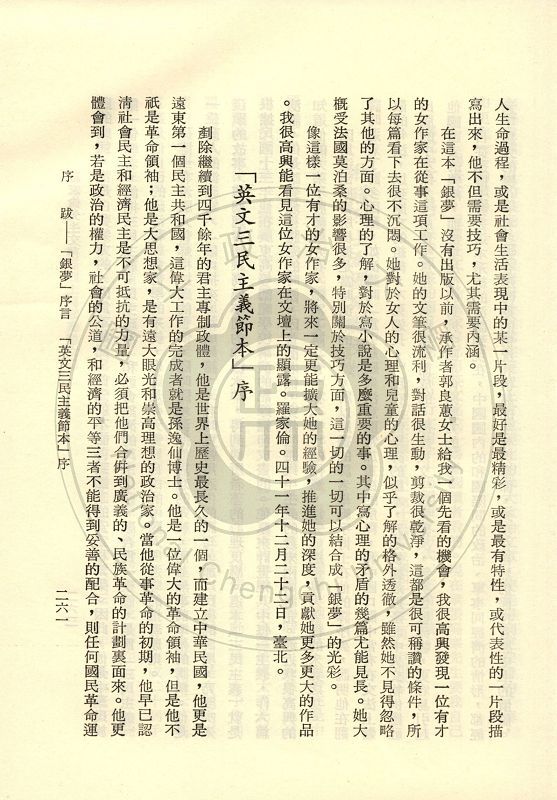 人生命過程，或是社會生活表現中的某一片段，最好是最精彩，或是最有特性，或代表性的一片段描
寫出來，他不但需要技巧，尤其需要內涵。
在這本「銀夢」沒有出版以前，承作者郭良蕙女士給我一個先看的機會，我很高興發現一位有才
的女作家在從事這項工作。她的文筆很流利，對話很生動，剪裁很乾淨，這都是很可稱讚的條件，所
以每篇看下去很不沉悶。她對於女人的心理和兒童的心理，似乎了解的格外透徹，雖然她不見得忽略
了其他的方面。心理的了解，對於寫小說是多麼重要的事。其中寫心理的矛盾的幾篇尤能見長。她大
概受法國莫泊桑的影響很多，特別關於技巧方面，這一切的一切可以結合成「銀夢」的光彩。
像這樣一位有才的女作家，將來一定更能擴大她的經驗，推進她的深度，貢獻她更多更大的作品
。我很高興能看見這位女作家在文壇上的顯露。羅家倫。四十一年十二月二十二日，臺北。
「英文三民主義節本」序
剷除繼續到四千餘年的君主專制政體，他是世界上歷史最長久的一個，而建立中華民國，他更是
遠東第一個民主共和國，這偉大工作的完成者就是孫逸仙博士。他是一位偉大的革命領袖，但是他不
祇是革命領袖；他是大思想家，是有遠大眼光和崇高理想的政治家。當他從事革命的初期，他早已認
清社會民主和經濟民主是不可抵抗的力量，必須把他們合倂到廣義的、民族革命的計劃裏面來。他更
體會到，若是政治的權力，社會的公道，和經濟的平等三者不能得到妥善的配合，則任何國民革命運
序　跋——「銀夢」序言　「英文三民主義節本」序
二六一